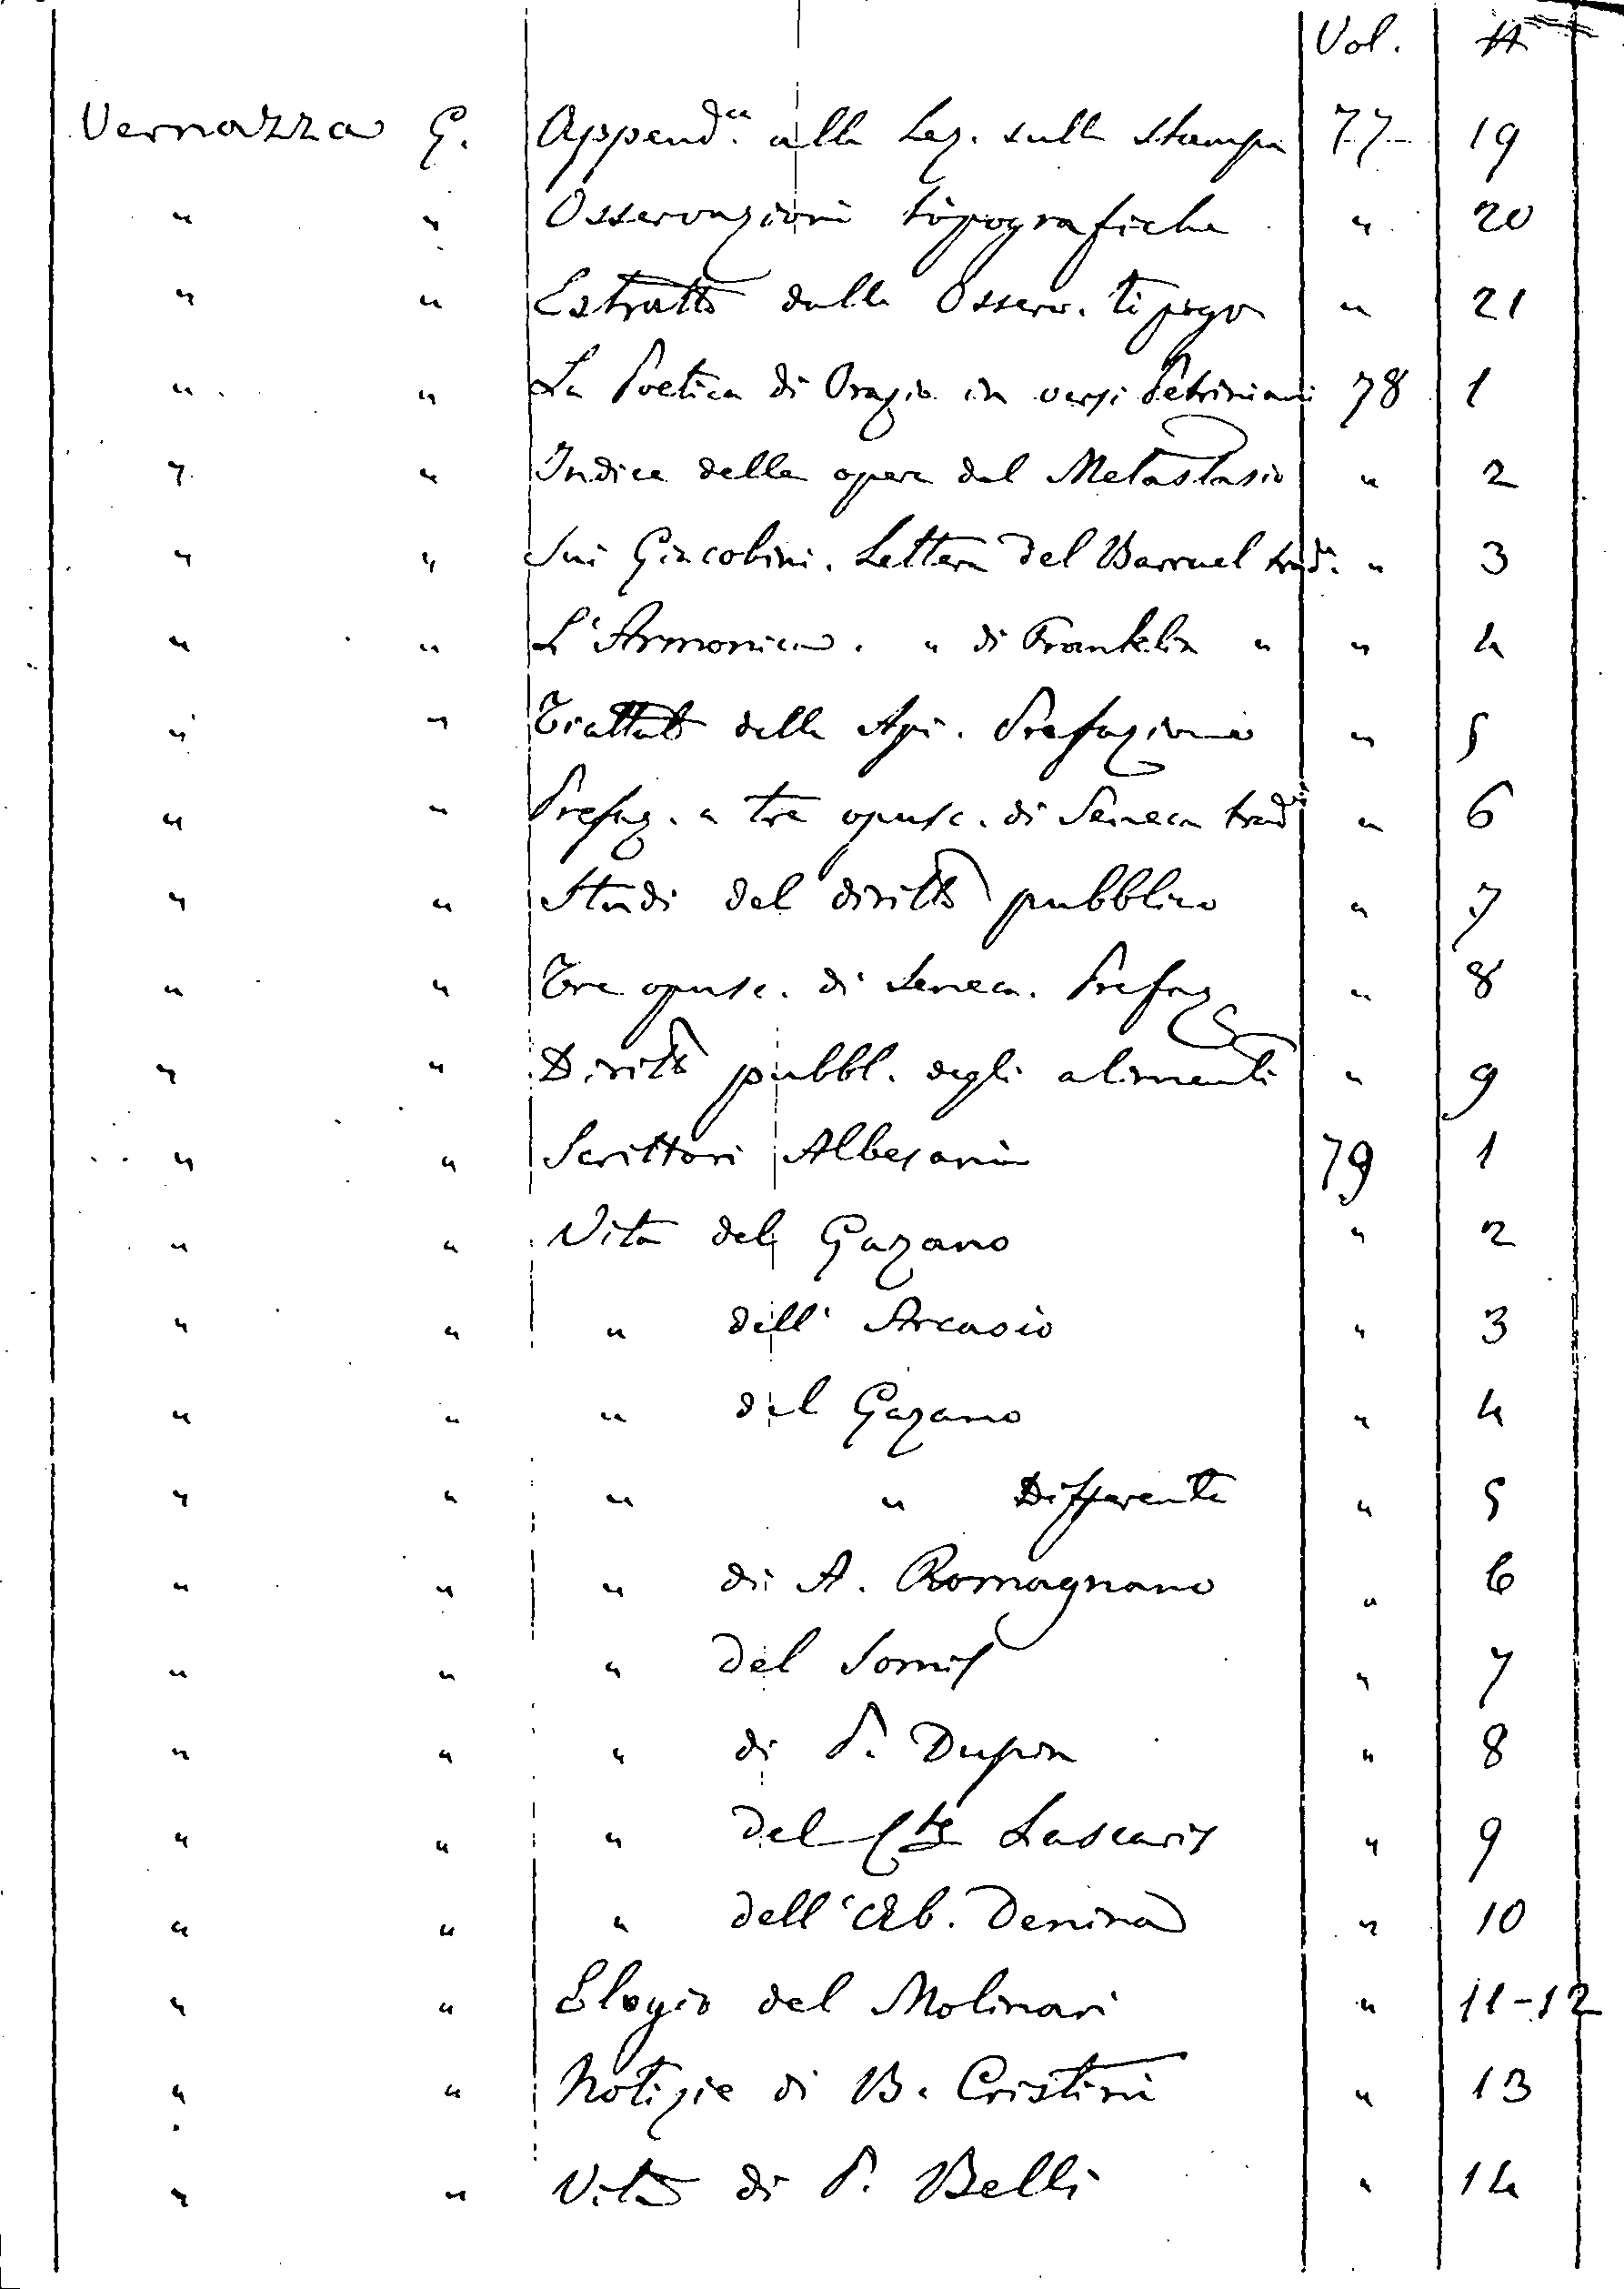 Vol. #
Vernazza G. Append.ce alla Lez. sulla stampa 77 19
" " Osservazioni tipografiche " 20
" " Estratto dalle Osserv. tipogr " 21
" " La Poetica di Orazio in versi Petriniani 78 1
" " Indice delle opere del Metastasio " 2
" " Sui Giacobini. Lettera del Barruel trad.a " 3
" " L'Armonica. " di Franklin " " 4
" " Trattato delle Api. Prefazione " 5
" " Prefaz. a tre opusc. di Seneca trad.i " 6
" " Studi del diritto pubblico " 7
" " Tre opusc. di Seneca. Prefaz " 8
" " Diritto pubbl. degli alimenti " 9
" " Scrittori Albesani 79 1
" " Vita del Gazano " 2
" " " dell' Arcasio " 3
" " " del Gazano " 4
" " " " Differente " 5
" " " di A. Romagnano " 6
" " " del Somis " 7
" " " di P. Dupon " 8
" " " del Cte Lascaris " 9
" " " dell'Ab. Denina " 10
" " Elogio del Molinari " 11-12
" " Notizie di B. Cristini " 13
" " Vita di P. Belli " 14